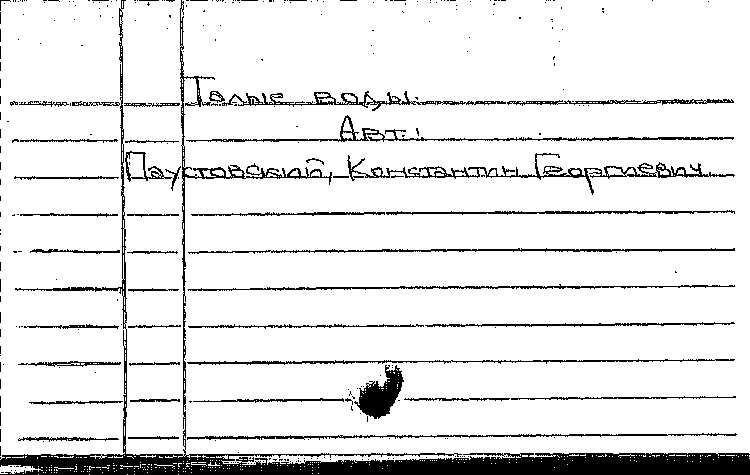 Талые воды.
Авт.:
Паустовский, Константин Георгиевич.